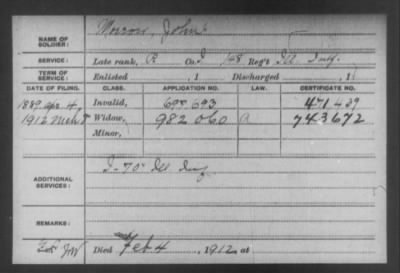 NAME OF SOLDIER: Morrow, John
SERVICE: Late rank, P. Co. I 148 Reg't Ill Inf.
TERM OF SERVICE: Enlisted , 1 Discharged , 1
DATE OF FILING. CLASS. APPLICATION NO. LAW. CERTIFICATE NO.
1889 Apr. 4, Invalid, 695 693
1912 Mch Widow, 982 060 A 743672
Minor,
ADDITIONAL SERVICES: I-70" Ill Inf
REMARKS:
Died Feb 4, 1912 at